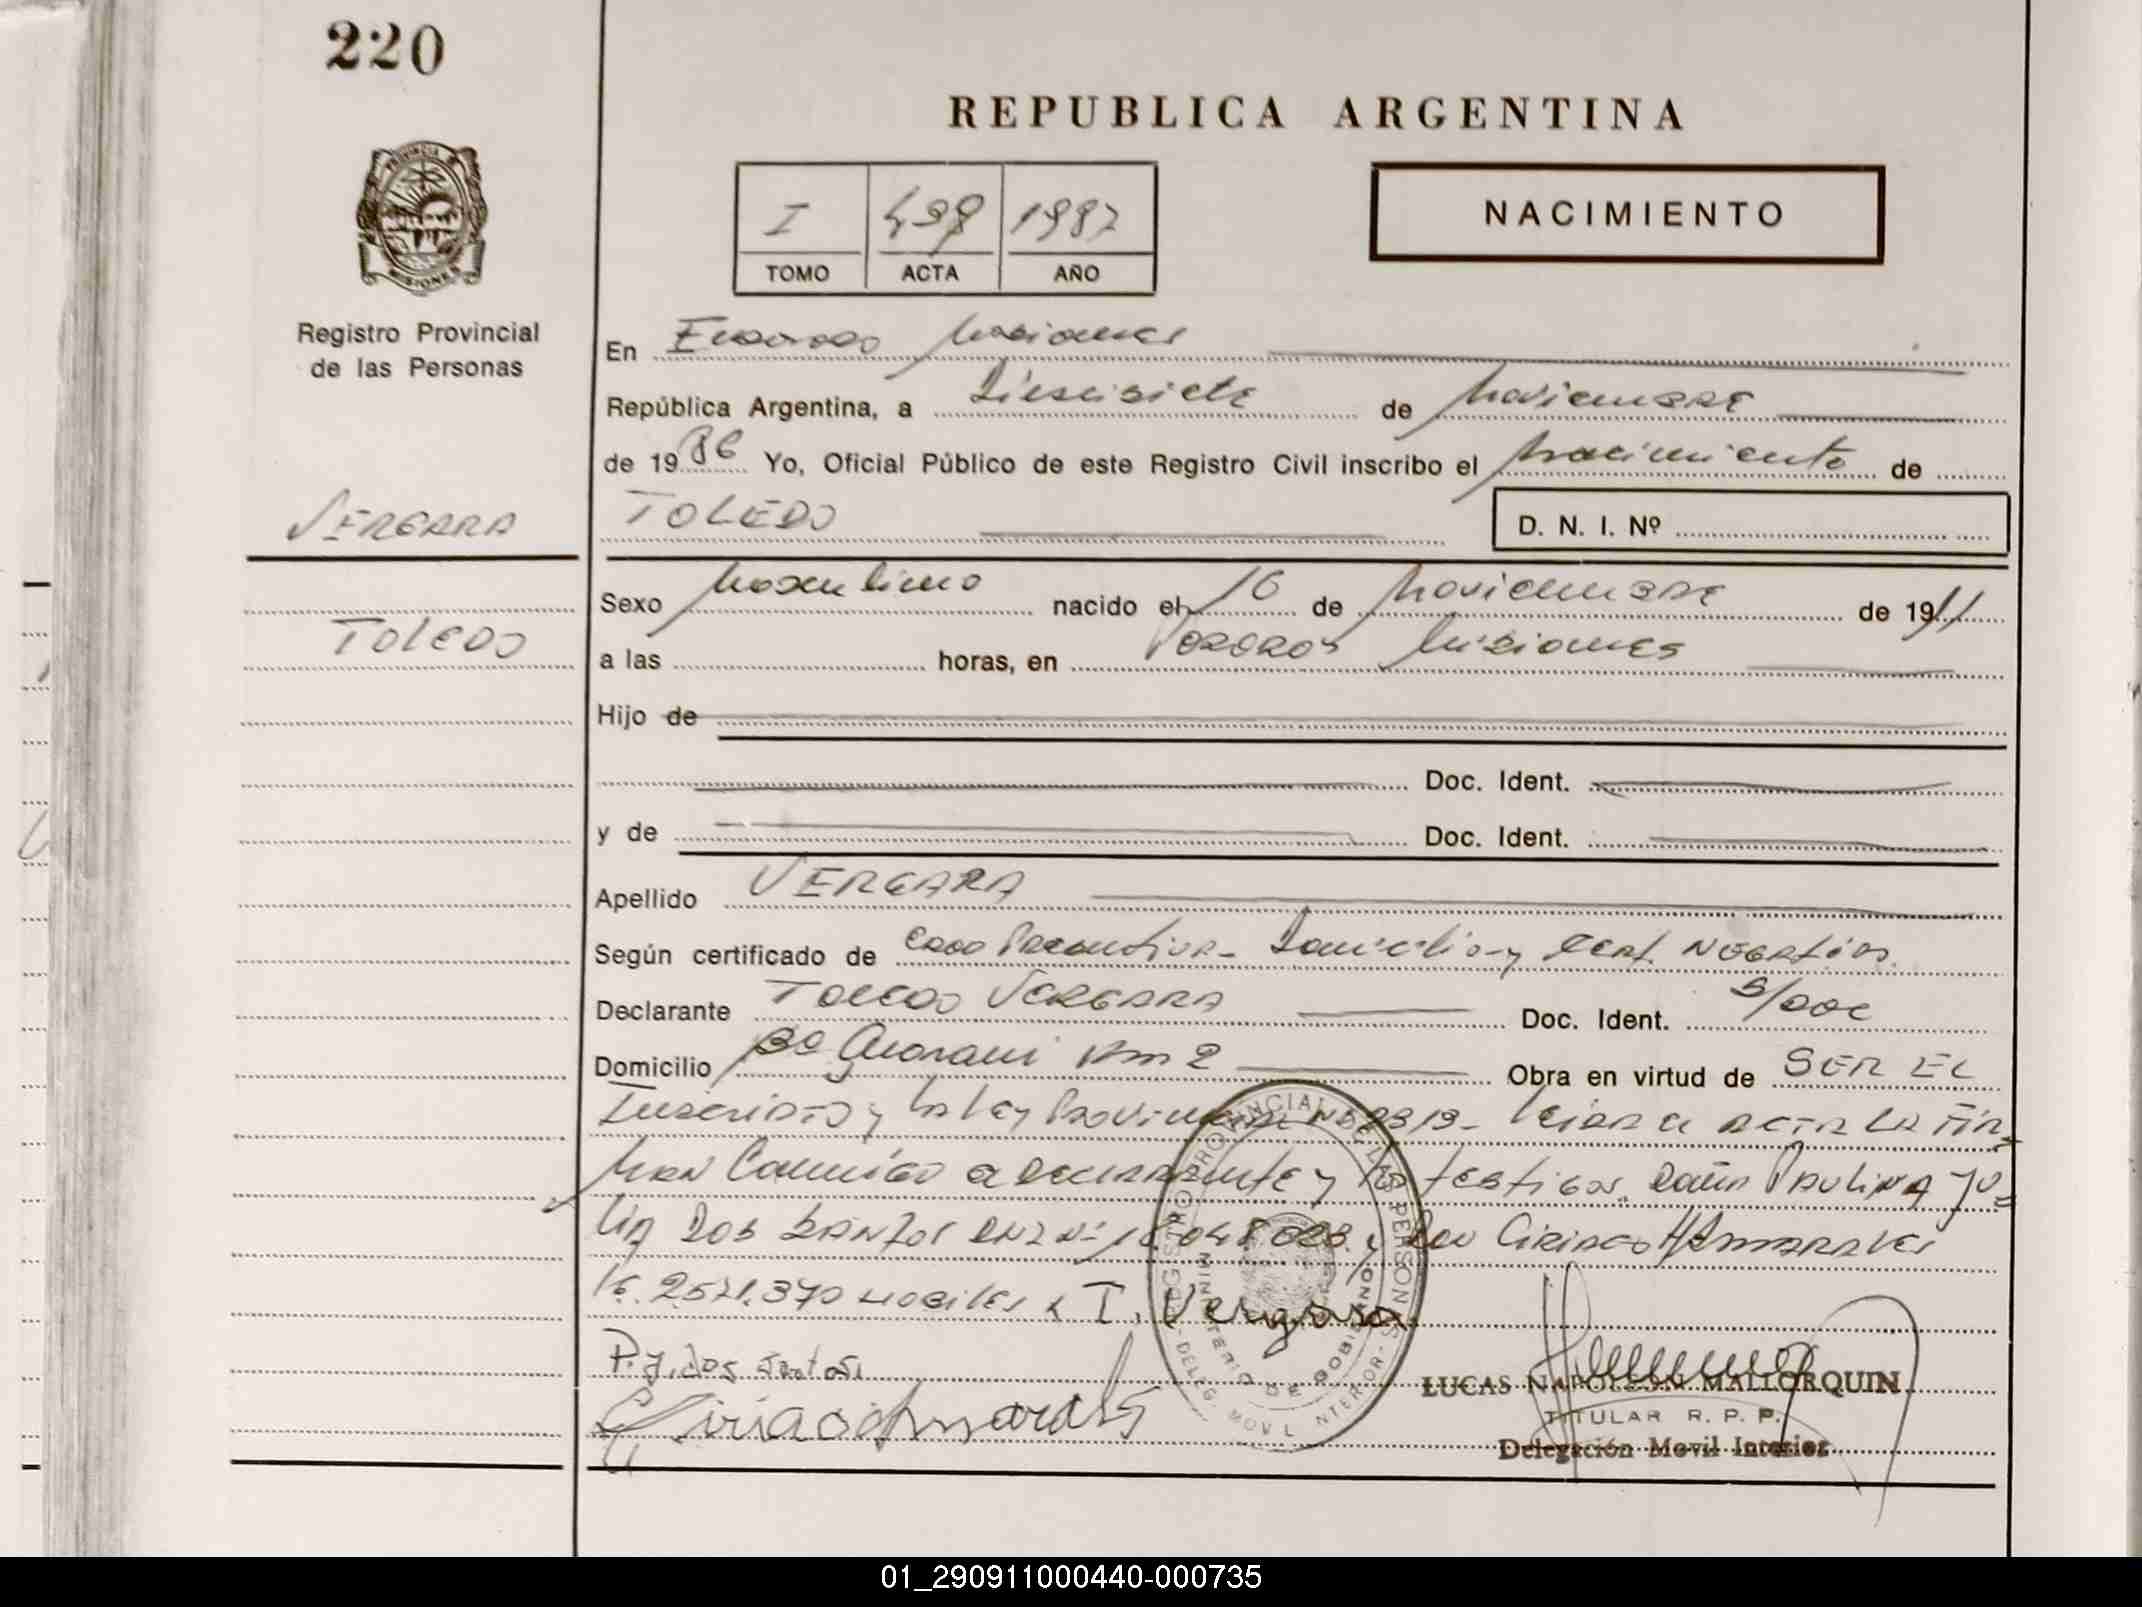 220
REPUBLICA ARGENTINA
PROVINCIA DE
MISIONES
Registro Provincial
de las Personas
I 1987
TOMO ACTA AÑO
NACIMIENTO
En Misiones
República Argentina, a Diescisiete de Noviembre
de 1986 Yo, Oficial Público de este Registro Civil inscribo el Nacimiento de
VERGARA
TOLEDO
D. N. I. Nº
TOLEDO
Sexo Masculino nacido el 16 de Noviembre de 19
a las horas, en Misiones
Hijo de
Doc. Ident.
y de Doc. Ident.
Apellido VERGARA
Según certificado de Domicilio y Cert. Negativo
Declarante TOLEDO VERGARA Doc. Ident. S/DOC
Domicilio Bº Guarani Km 2 Obra en virtud de SER EL
Inscripto y la Ley Provincial Nº 2313- Leida el acta la fir-
man conmigo el declarante y los testigos Doña Paulina Ju-
lia dos Santos y Don Ciriaco Amarales
T. Vergara
P. J. dos Santos
Ciriaco Amarales
REGISTRO PROVINCIAL DE LAS PERSONAS
MINISTERIO DE GOBIERNO
DELEG. MOVIL INTERIOR
LUCAS NAPOLEON MALLORQUIN
TITULAR R. P. P.
Delegación Movil Interior
01_290911000440-000735